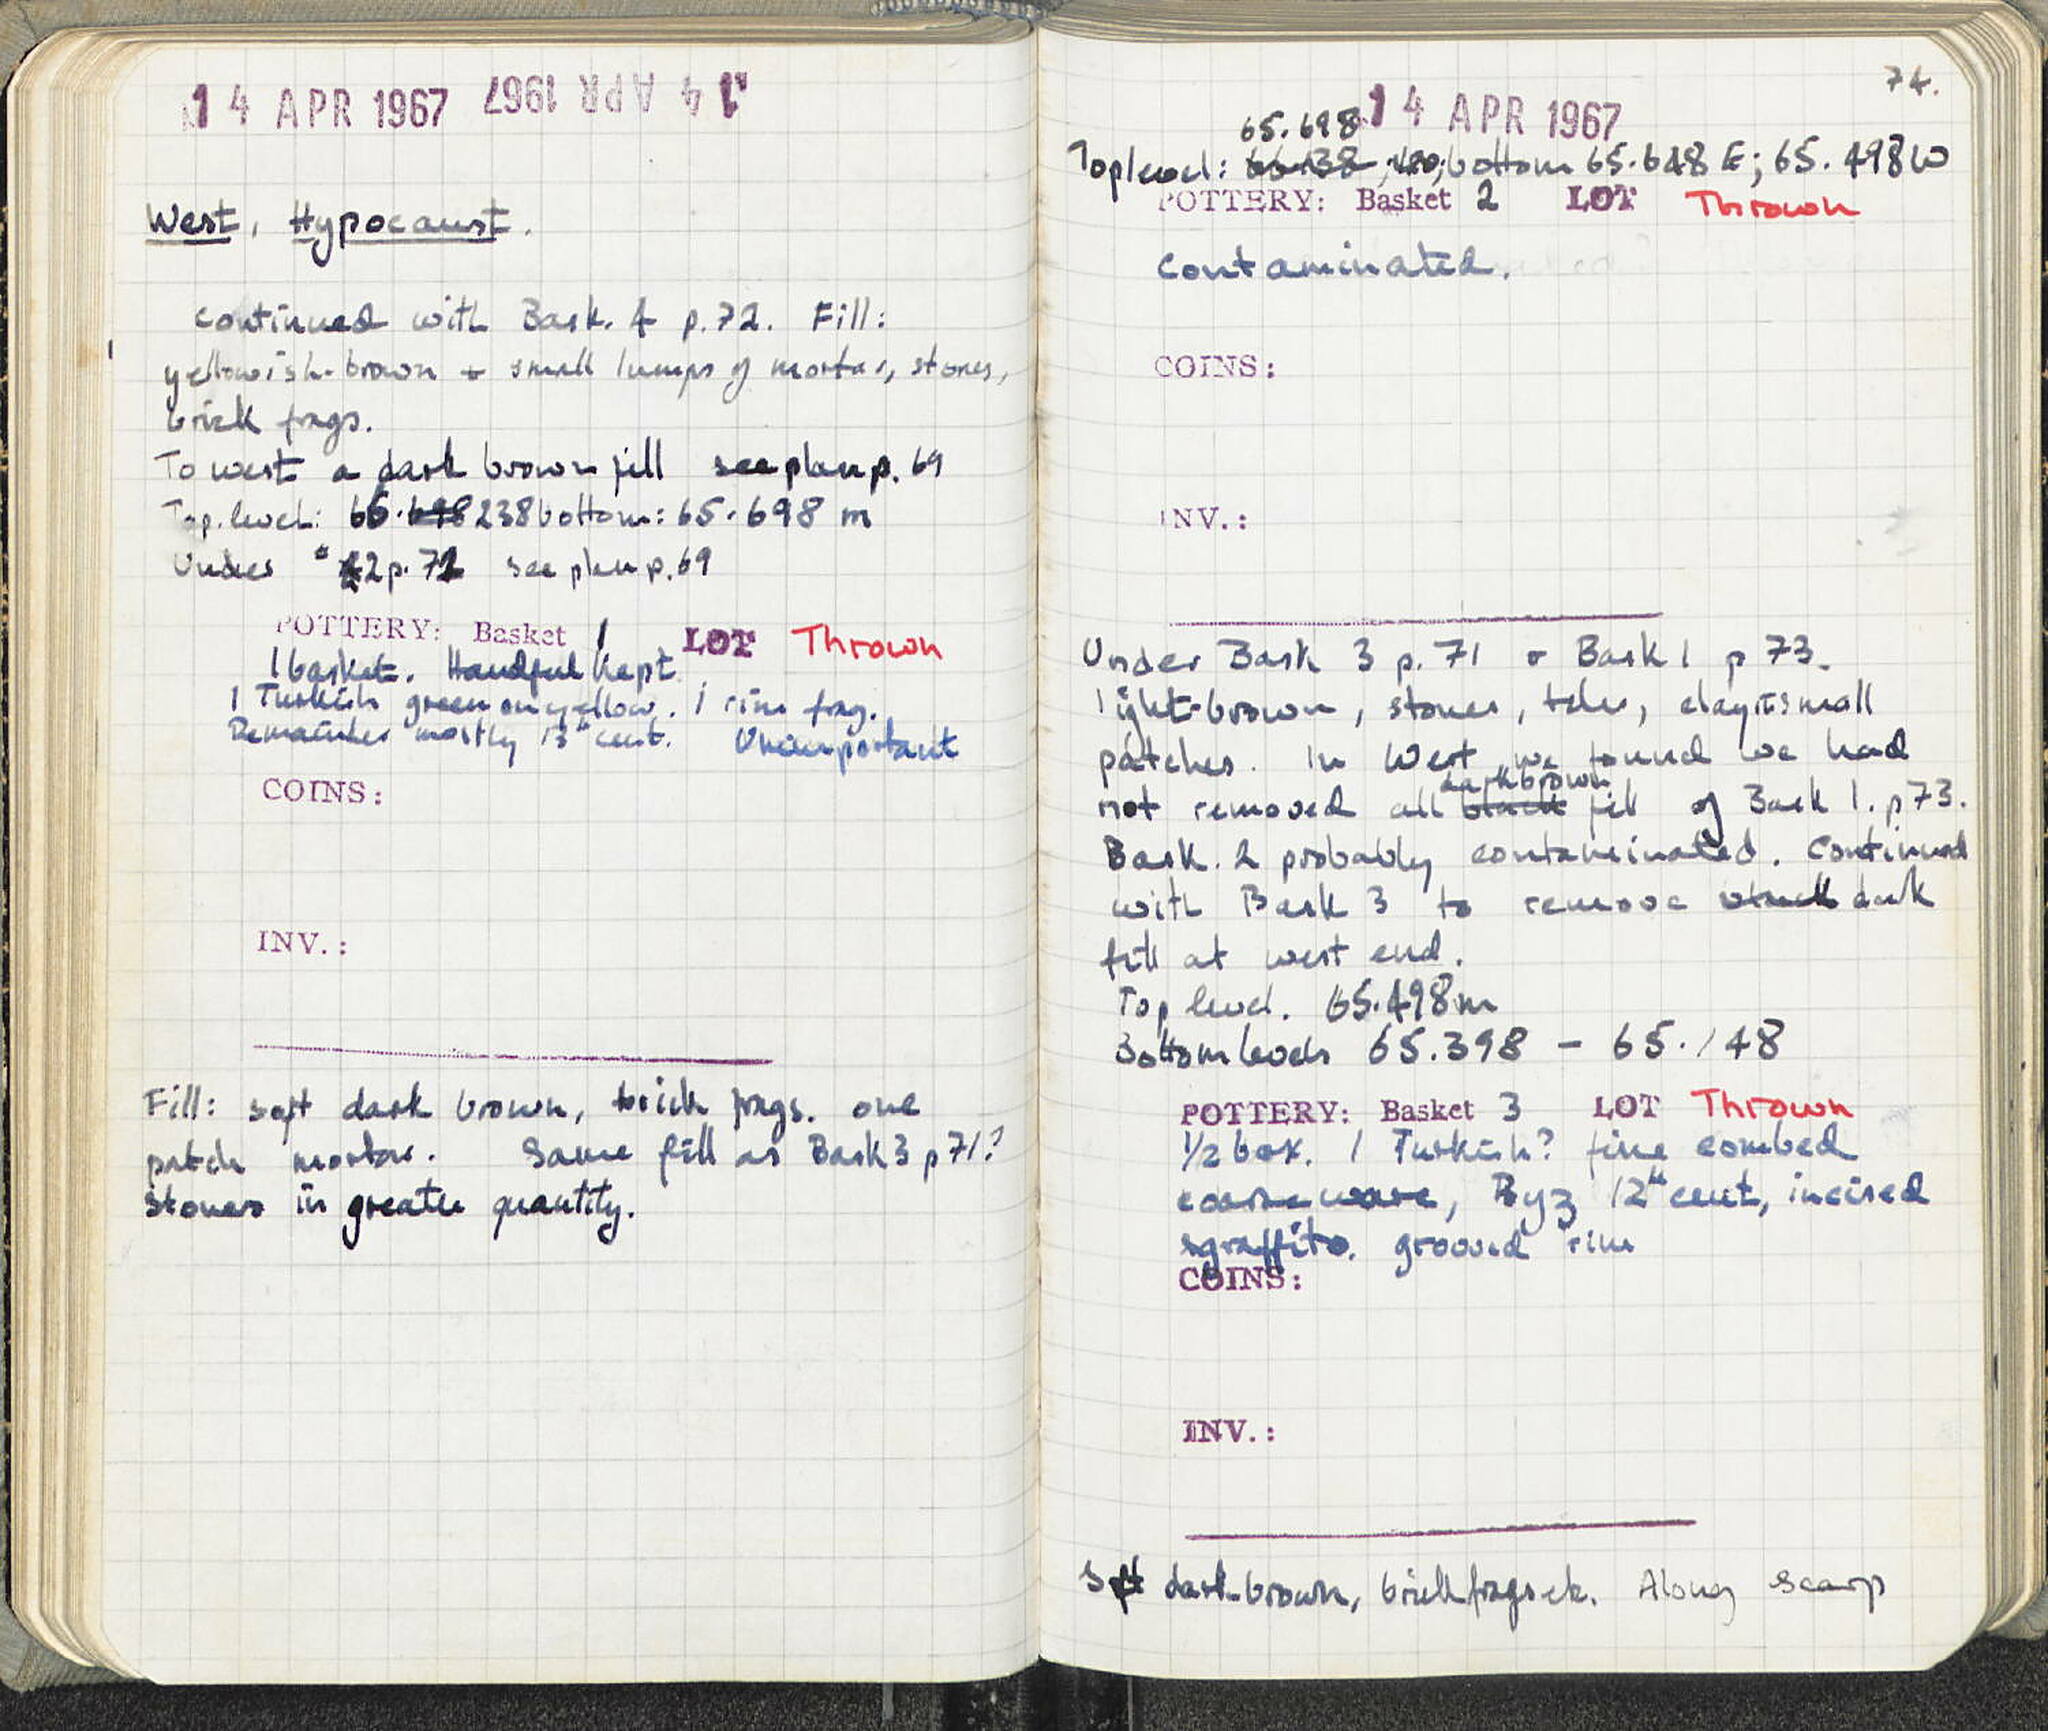 14 APR 1967 14 APR 1967
West, Hypocaust.
continued with Bask. 4 p.72. Fill:
yellowish-brown + small lumps of mortar, stones,
brick frags.
To west a dark brown fill see plan p. 69
Top level: 66.698 238 bottom: 65.698 m
Under 2 p. 72 see plan p. 69
POTTERY: Basket 1 LOT Thrown
1 basket. Handful kept
1 Turkish green on yellow. 1 rim frag.
Remainder mostly 13th cent. Unimportant
COINS:
INV.:
Fill: soft dark brown, brick frags. one
patch mortar. Same fill as Bask 3 p 71?
stones in greater quantity.
74.
14 APR 1967
65.698
Top level: 66.138, bottom 65.648 E; 65.498 W
POTTERY: Basket 2 LOT Thrown
contaminated.
COINS:
INV.:
Under Bask 3 p. 71 + Bask 1 p 73.
light-brown, stones, tiles, clay in small
patches. In West we found we had
dark brown
not removed all black fill of Bask 1. p 73.
Bask. 2 probably contaminated. Continued
with Bask 3 to remove black dark
fill at west end.
Top level. 65.498m
Bottom levels 65.398 - 65.148
POTTERY: Basket 3 LOT Thrown
1/2 box. 1 Turkish? fine combed
coarse ware, Byz 12th cent, incised
sgraffito. grooved rim
COINS:
INV.:
Soft dark brown, brick frags etc. Along scarp